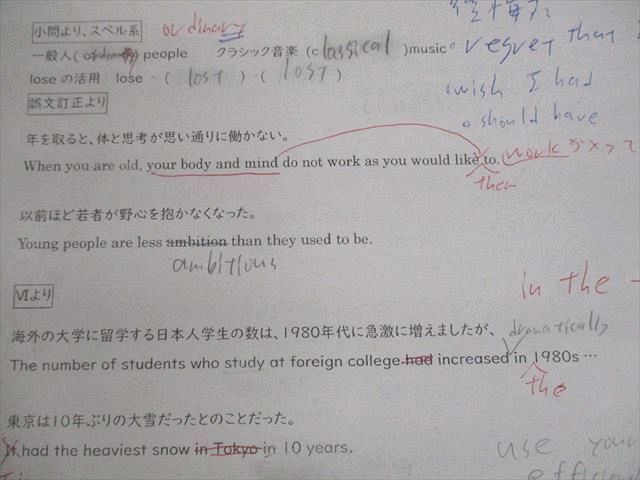 小問より、スペル系
ordinary
一般人( ) people クラシック音楽 (classical )music
loseの活用 lose - ( lost ) - ( lost )
regret that
wish I had
should have
誤文訂正より
年を取ると、体と思考が思い通りに働かない。
When you are old, your body and mind do not work as you would like to.
them
work が
以前ほど若者が野心を抱かなくなった。
Young people are less ambition than they used to be.
ambitious
in the
Ⅵより
海外の大学に留学する日本人学生の数は、1980年代に急激に増えましたが、
dramatically
The number of students who study at foreign college had increased in 1980s …
the
東京は10年ぶりの大雪だったとのことだった。
It had the heaviest snow in Tokyo in 10 years.
use your